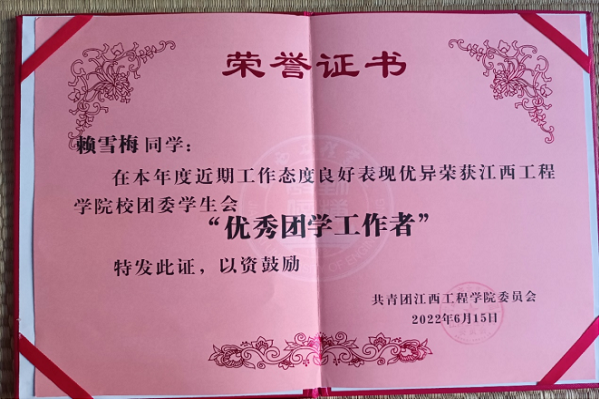 荣誉证书
赖雪梅同学：
在本年度近期工作态度良好表现优异荣获江西工程
学院校团委学生会
“优秀团学工作者”
特发此证，以资鼓励
共青团江西工程学院委员会
2022年6月15日